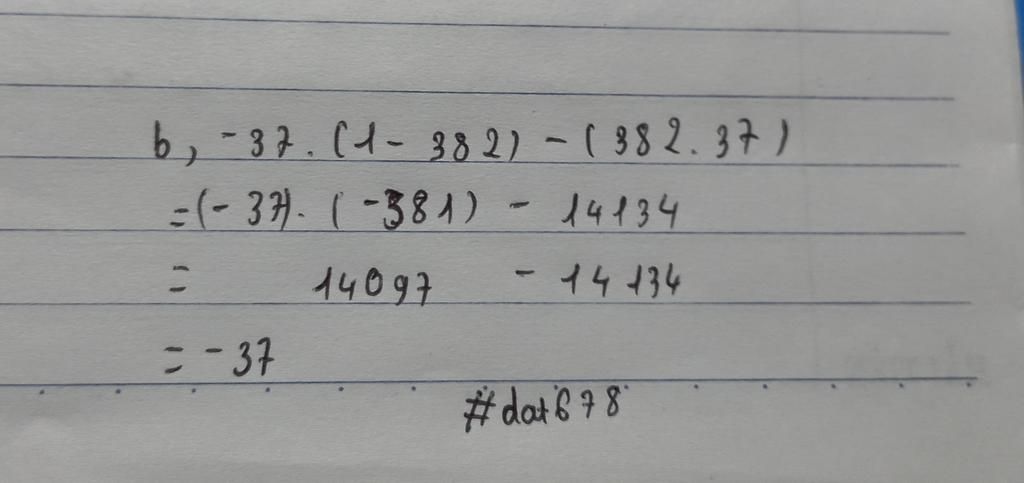 b, -37. (1 - 382) - (382.37)
= (-37). (-381) - 14134
= 14097 - 14134
= -37
#dat678